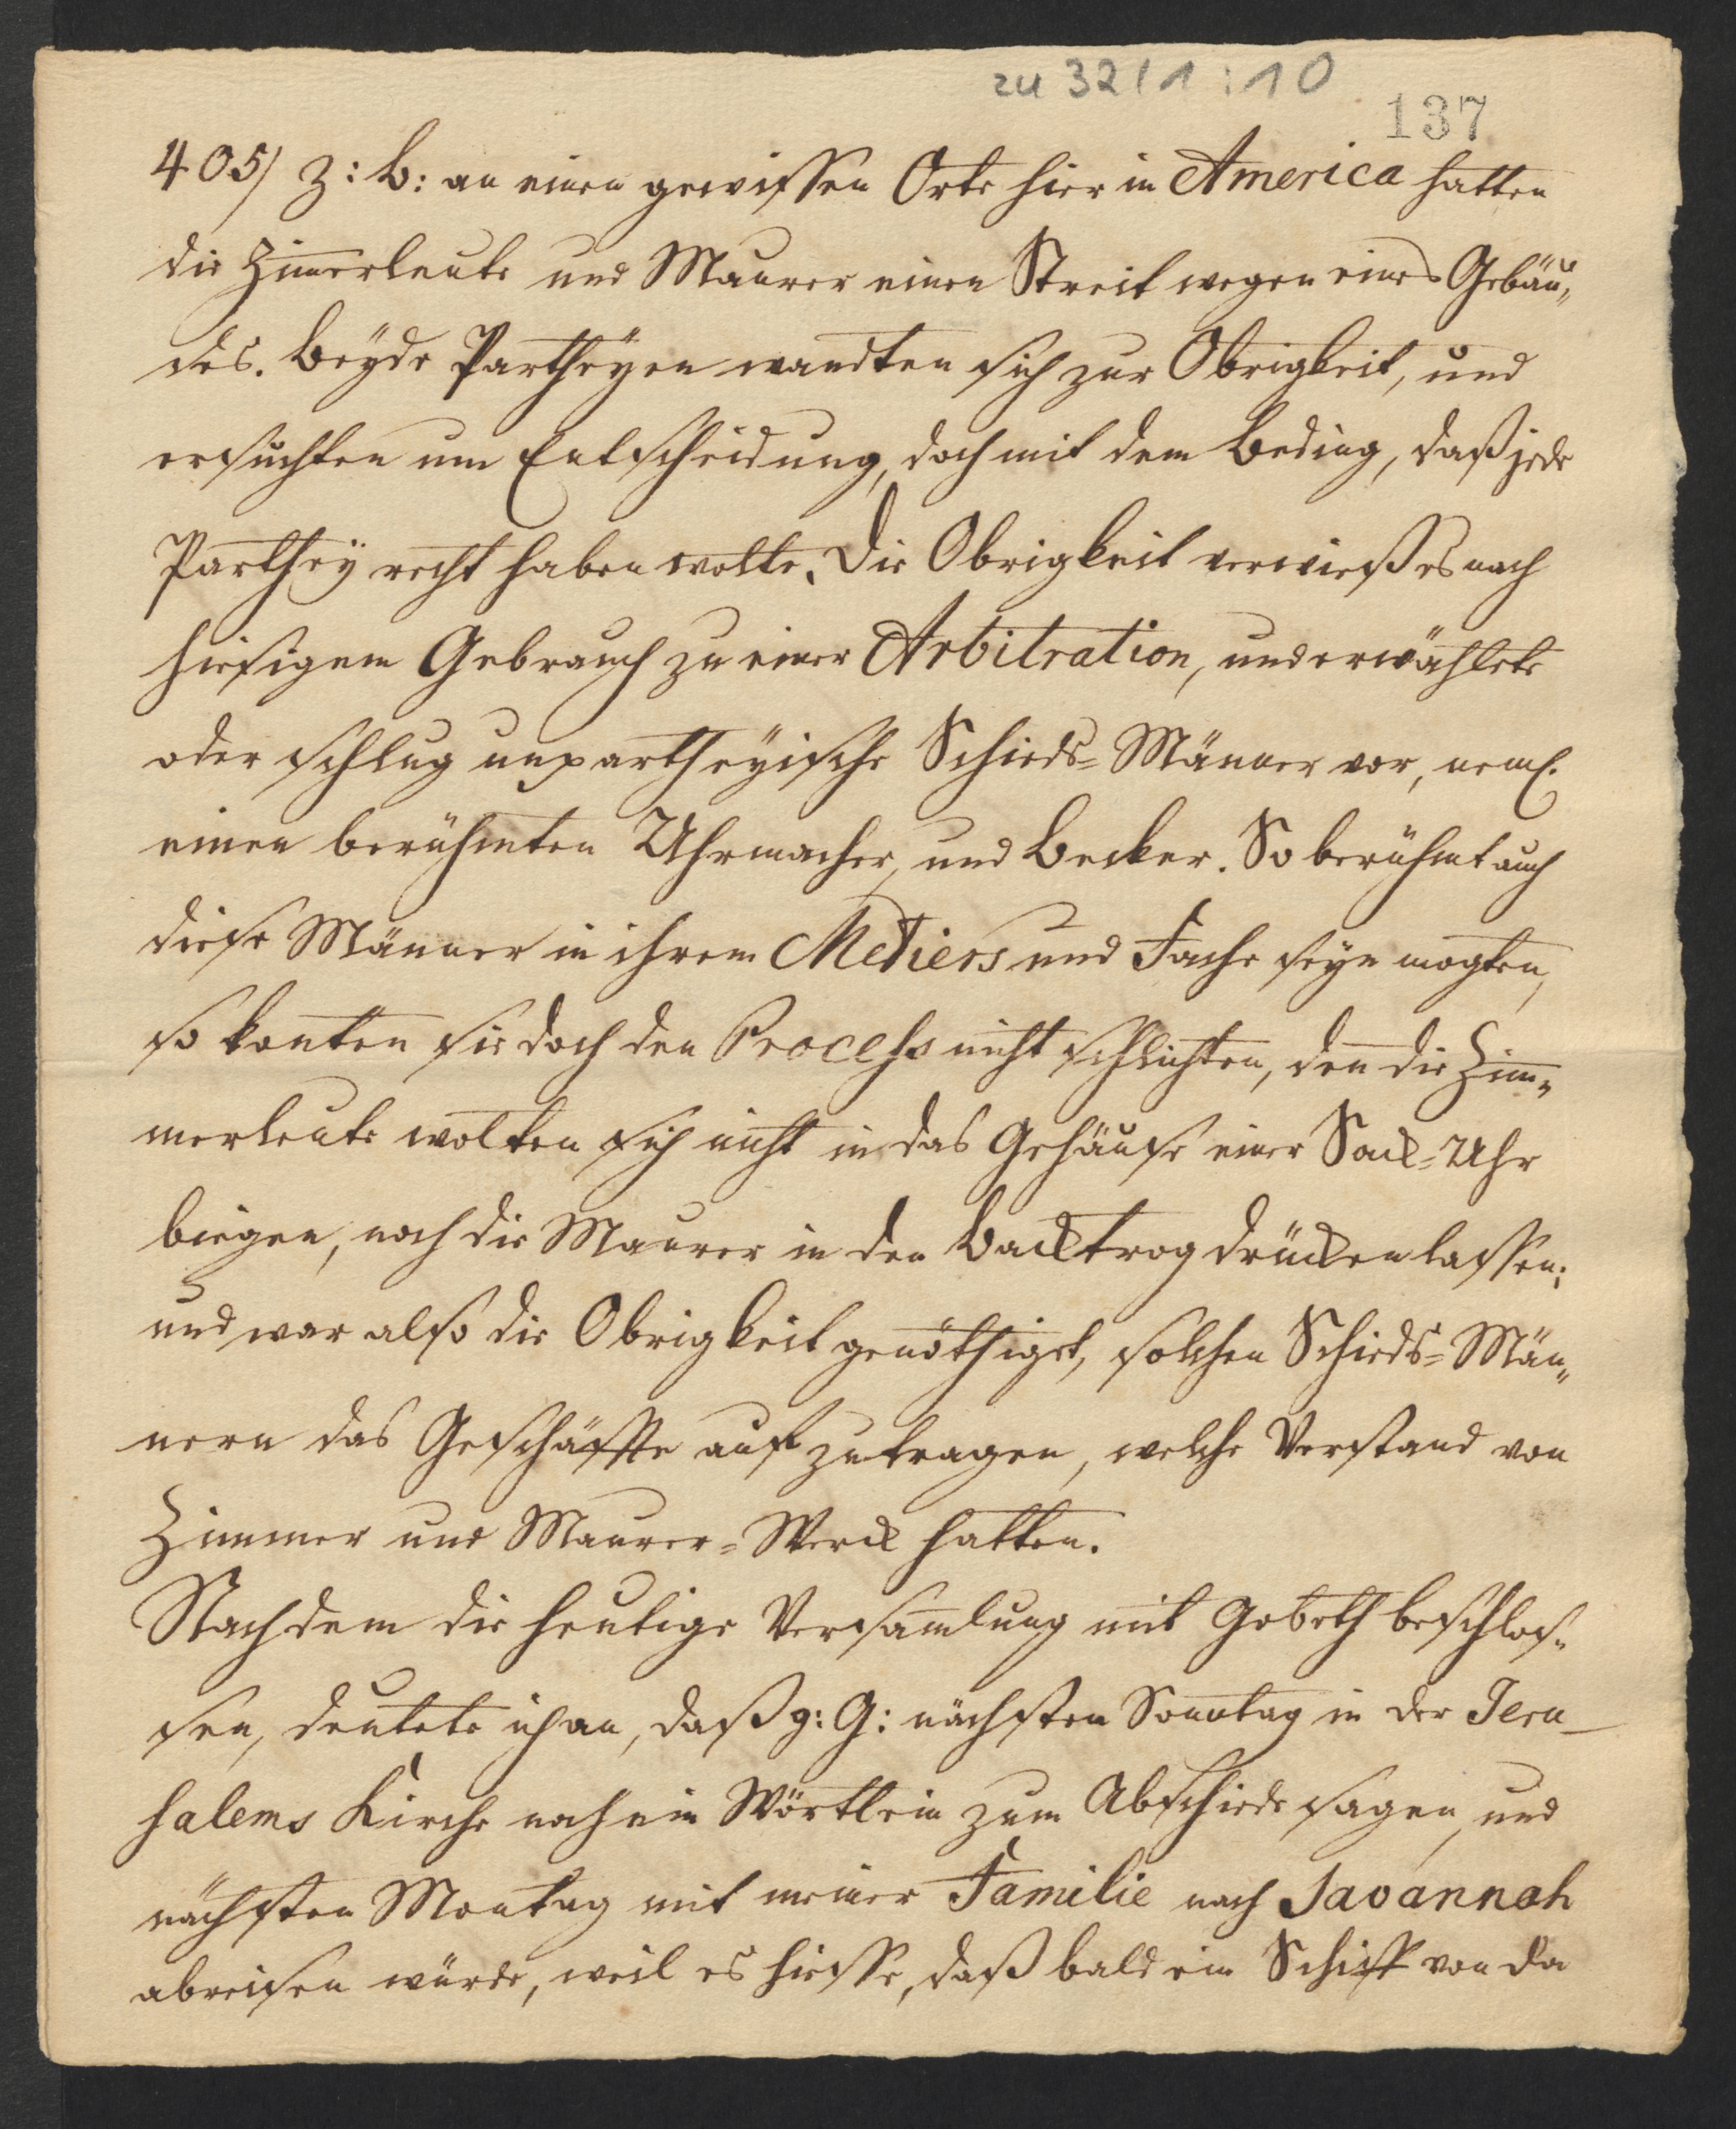 zu 32/1:10
137
405/ z: b: an einen gewissen Orte hier in America hatten
die Zim̅erleute und Maurer einen Streit wegen eines Gebäu„
des. Beyde Partheÿen wandten sich zur Obrigkeit, und
ersuchten um Entscheidung, doch mit dem Beding, daß jede
Parthey recht haben wolte. Die Obrigkeit verwieß es nach
hiesigem Gebrauch zu einer Arbitration, und erwählete
oder schlug unpartheÿische Schieds=Männer vor, neml.
einen berühmten Uhrmacher, und Becker. So berühmt auch
diese Männer in ihrem Metiers und Fache seÿn mogten,
so konten sie doch den Process nicht schlichten, den̅ die Zim„
merleute wolten sich nicht in das Gehäuse einer Sack=Uhr
biegen, noch die Maurer in den Backtrog drücken lassen;
und war also die Obrigkeit genöthiget, solchen Schieds=Män„
nern das Geschäffte aufzutragen, welche Verstand von
Zimmer und Maurer=Werck hatten.
Nachdem die heutige Versam̅lung mit Gebeth beschlos„
sen, deutete ich an, daß g: G: nächsten Sonntag in der Jeru_
salems Kirche noch ein Wörtlein zum Abschiede sagen, und
nächsten Montag mit meiner Familie nach Savannah
abreisen würde, weil es hiesse, daß bald ein Schiff von da